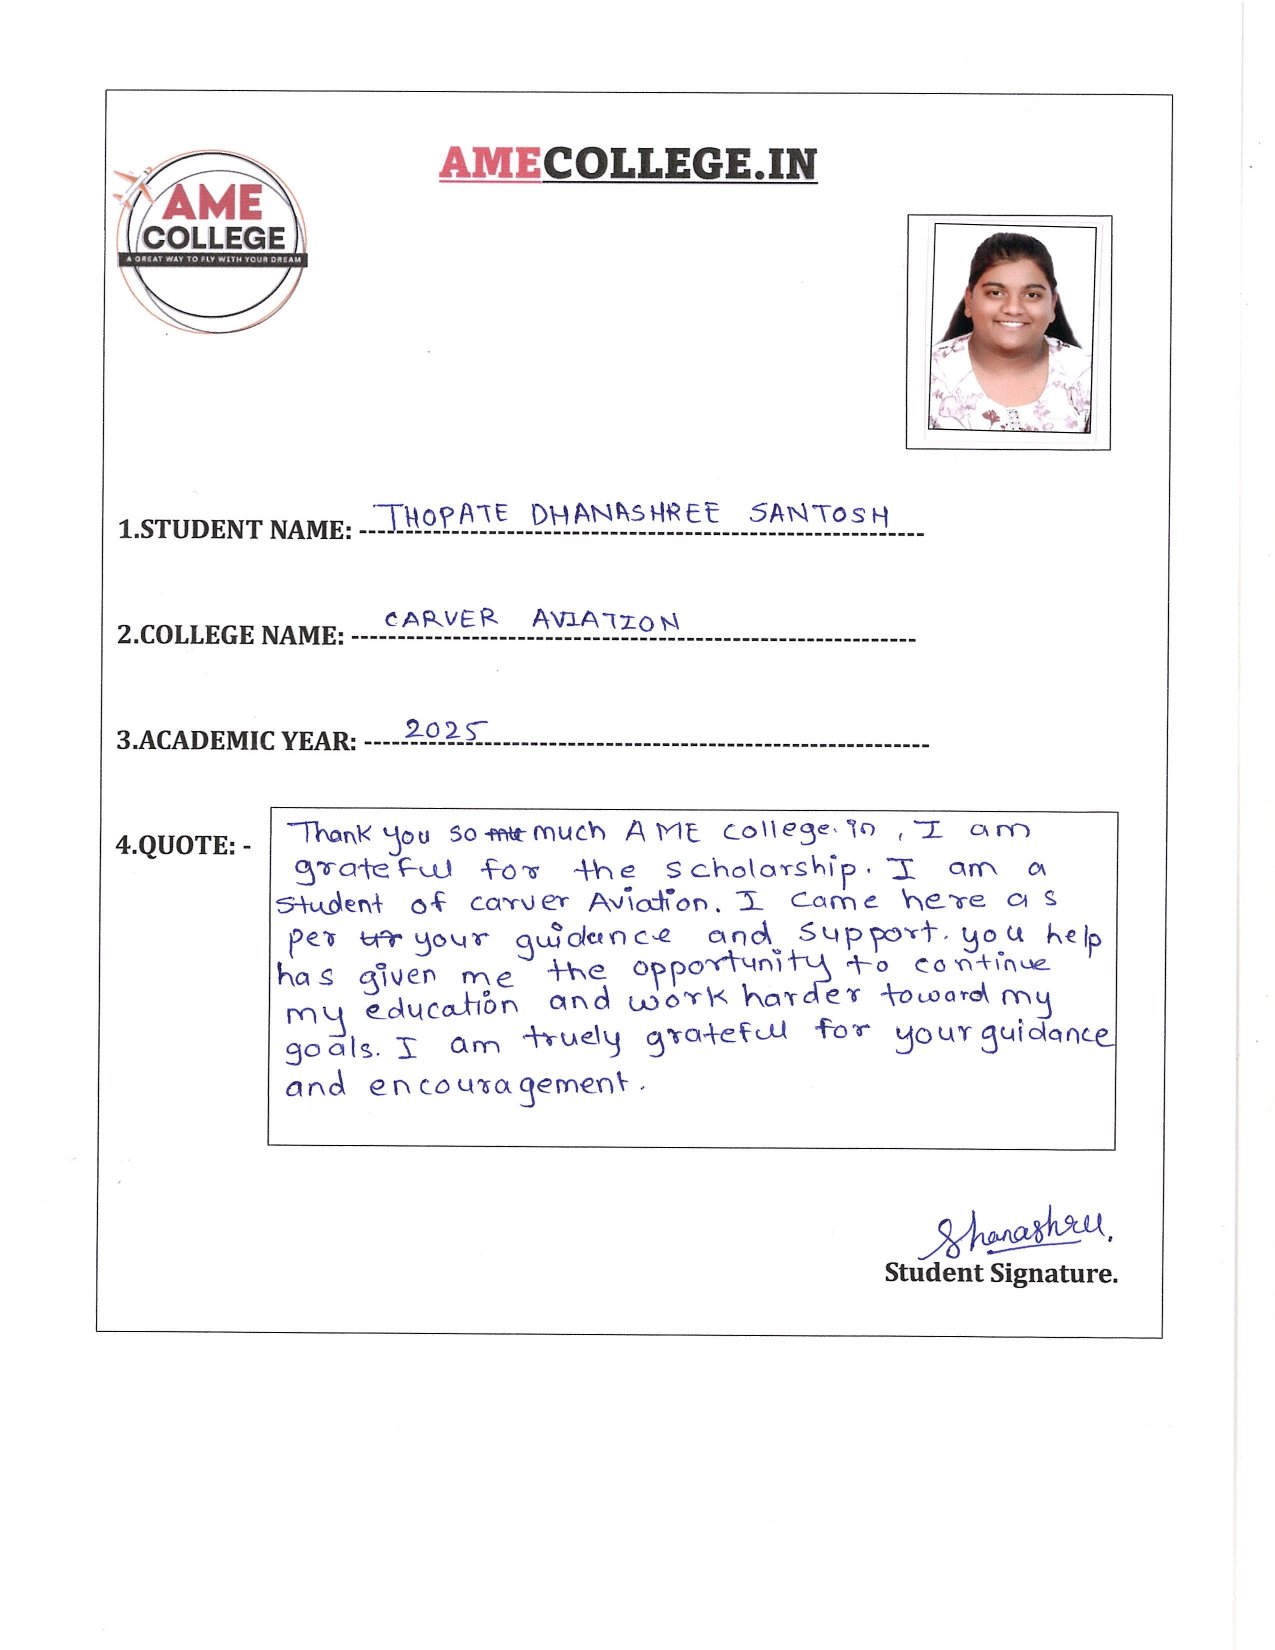 AMECOLLEGE.IN
AME
COLLEGE
A GREAT WAY TO FLY WITH YOUR DREAM
1.STUDENT NAME: THOPATE DHANASHREE SANTOSH
2.COLLEGE NAME: CARVER AVIATION
3.ACADEMIC YEAR: 2025
4.QUOTE: - Thank you so much AME college.in , I am
grateful for the scholarship. I am a
student of carver Aviation. I came here as
per your guidance and support. you help
has given me the opportunity to continue
my education and work harder toward my
goals. I am truely grateful for your guidance
and encouragement.
Dhanashree.
Student Signature.